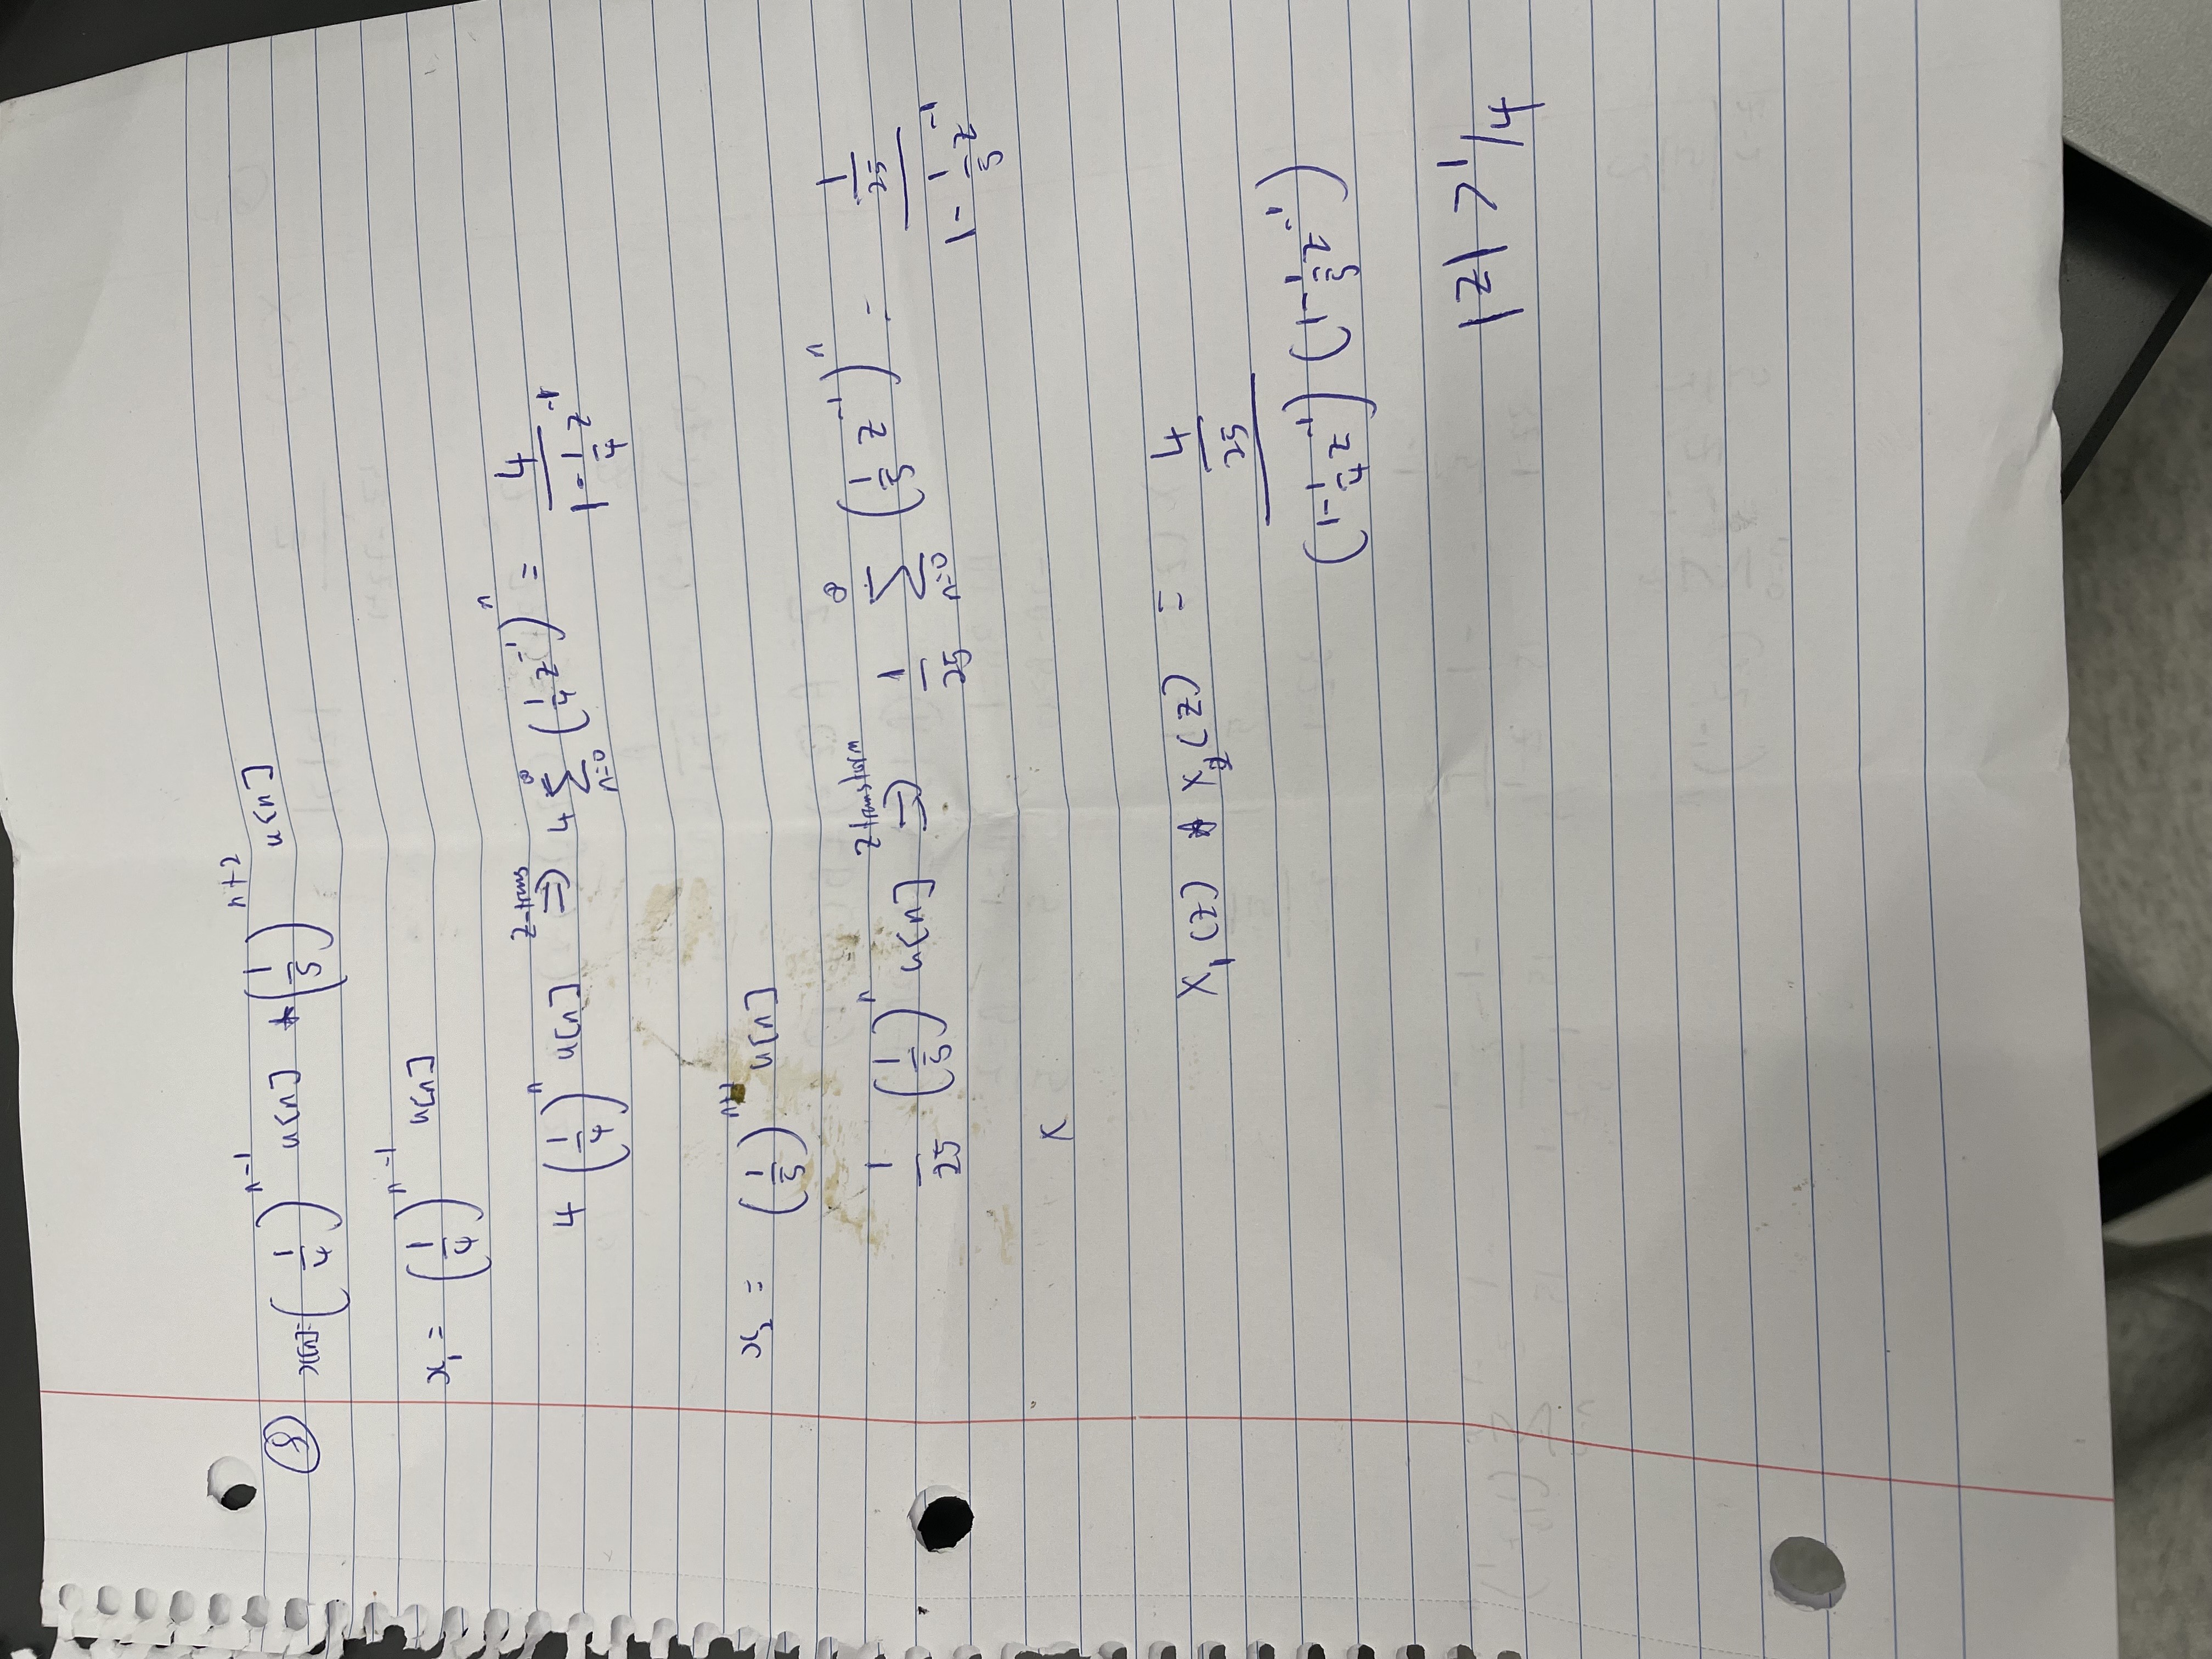 ⑧ x[n]=(1/4)^{n-1} u[n] * (1/5)^{n+2} u[n]
x₁ = (1/4)^{n-1} u[n]
4 (1/4)^n u[n] ⇒ (Z-trans) 4 Σ_{n=0}^{∞} (1/4 z^{-1})^n = 4 / (1 - 1/4 z^{-1})
x₂ = (1/5)^{n+2} u[n]
1/25 (1/5)^n u[n] ⇒ (Z transform) 1/25 Σ_{n=0}^{∞} (1/5 z^{-1})^n = (1/25) / (1 - 1/5 z^{-1})
X
X₁(z) * X₂(z) = (4/25) / ((1 - 1/4 z^{-1}) (1 - 1/5 z^{-1}))
|z| > 1/4